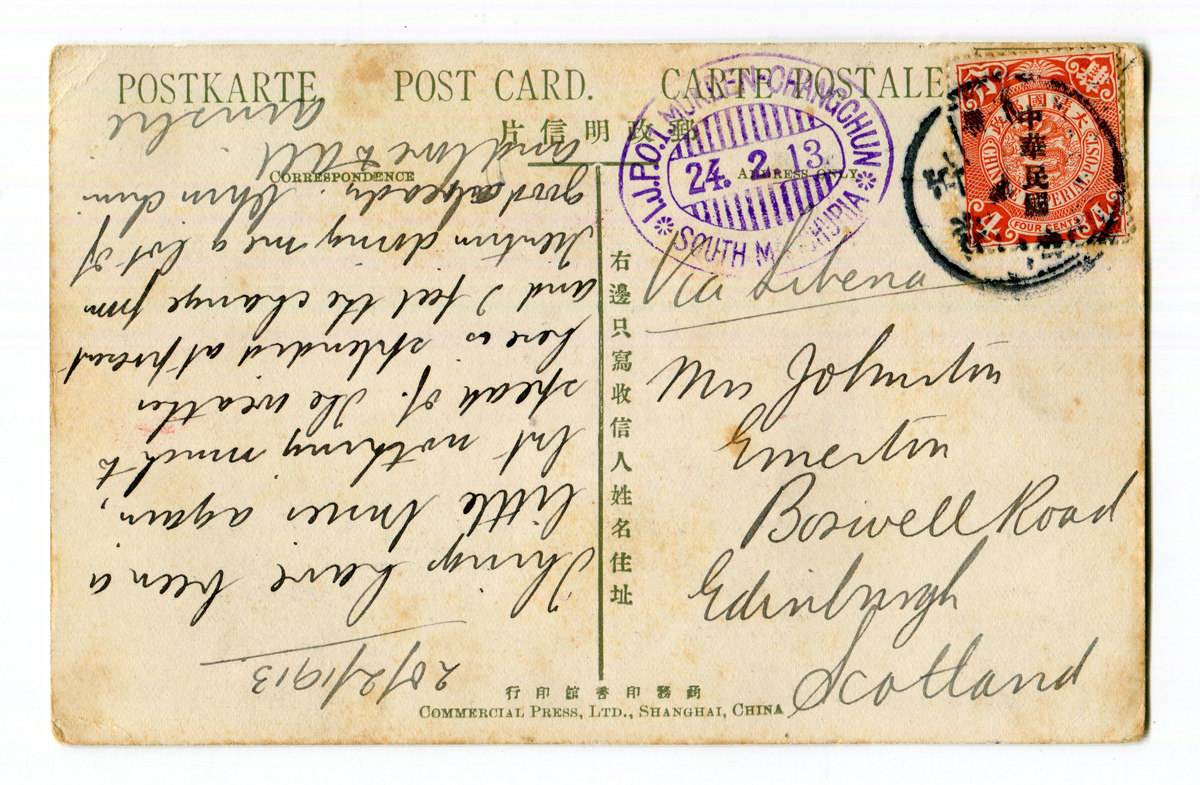 POSTKARTE POST CARD. CARTE POSTALE
片信明政郵
CORRESPONDENCE
ADDRESS ONLY
I.J.P.O. MUKDEN-CHANGCHUN
24. 2. 13.
SOUTH MANCHURIA
大清國郵政
中華民國
CHINESE IMPERIAL POST
FOUR CENTS
4 4
右邊只寫收信人姓名住址
Via Siberia
Mrs Johnston
Emerton
Boswell Road
Edinburgh
Scotland
20/2/1913
Things have been a
little busier again,
but nothing much to
speak of. The weather
here is splendid at present
and I feel the change from
Tientsin doing me a lot of
good already Chin chin
and love to all
Ainslie
行印館書印務商
COMMERCIAL PRESS, LTD., SHANGHAI, CHINA